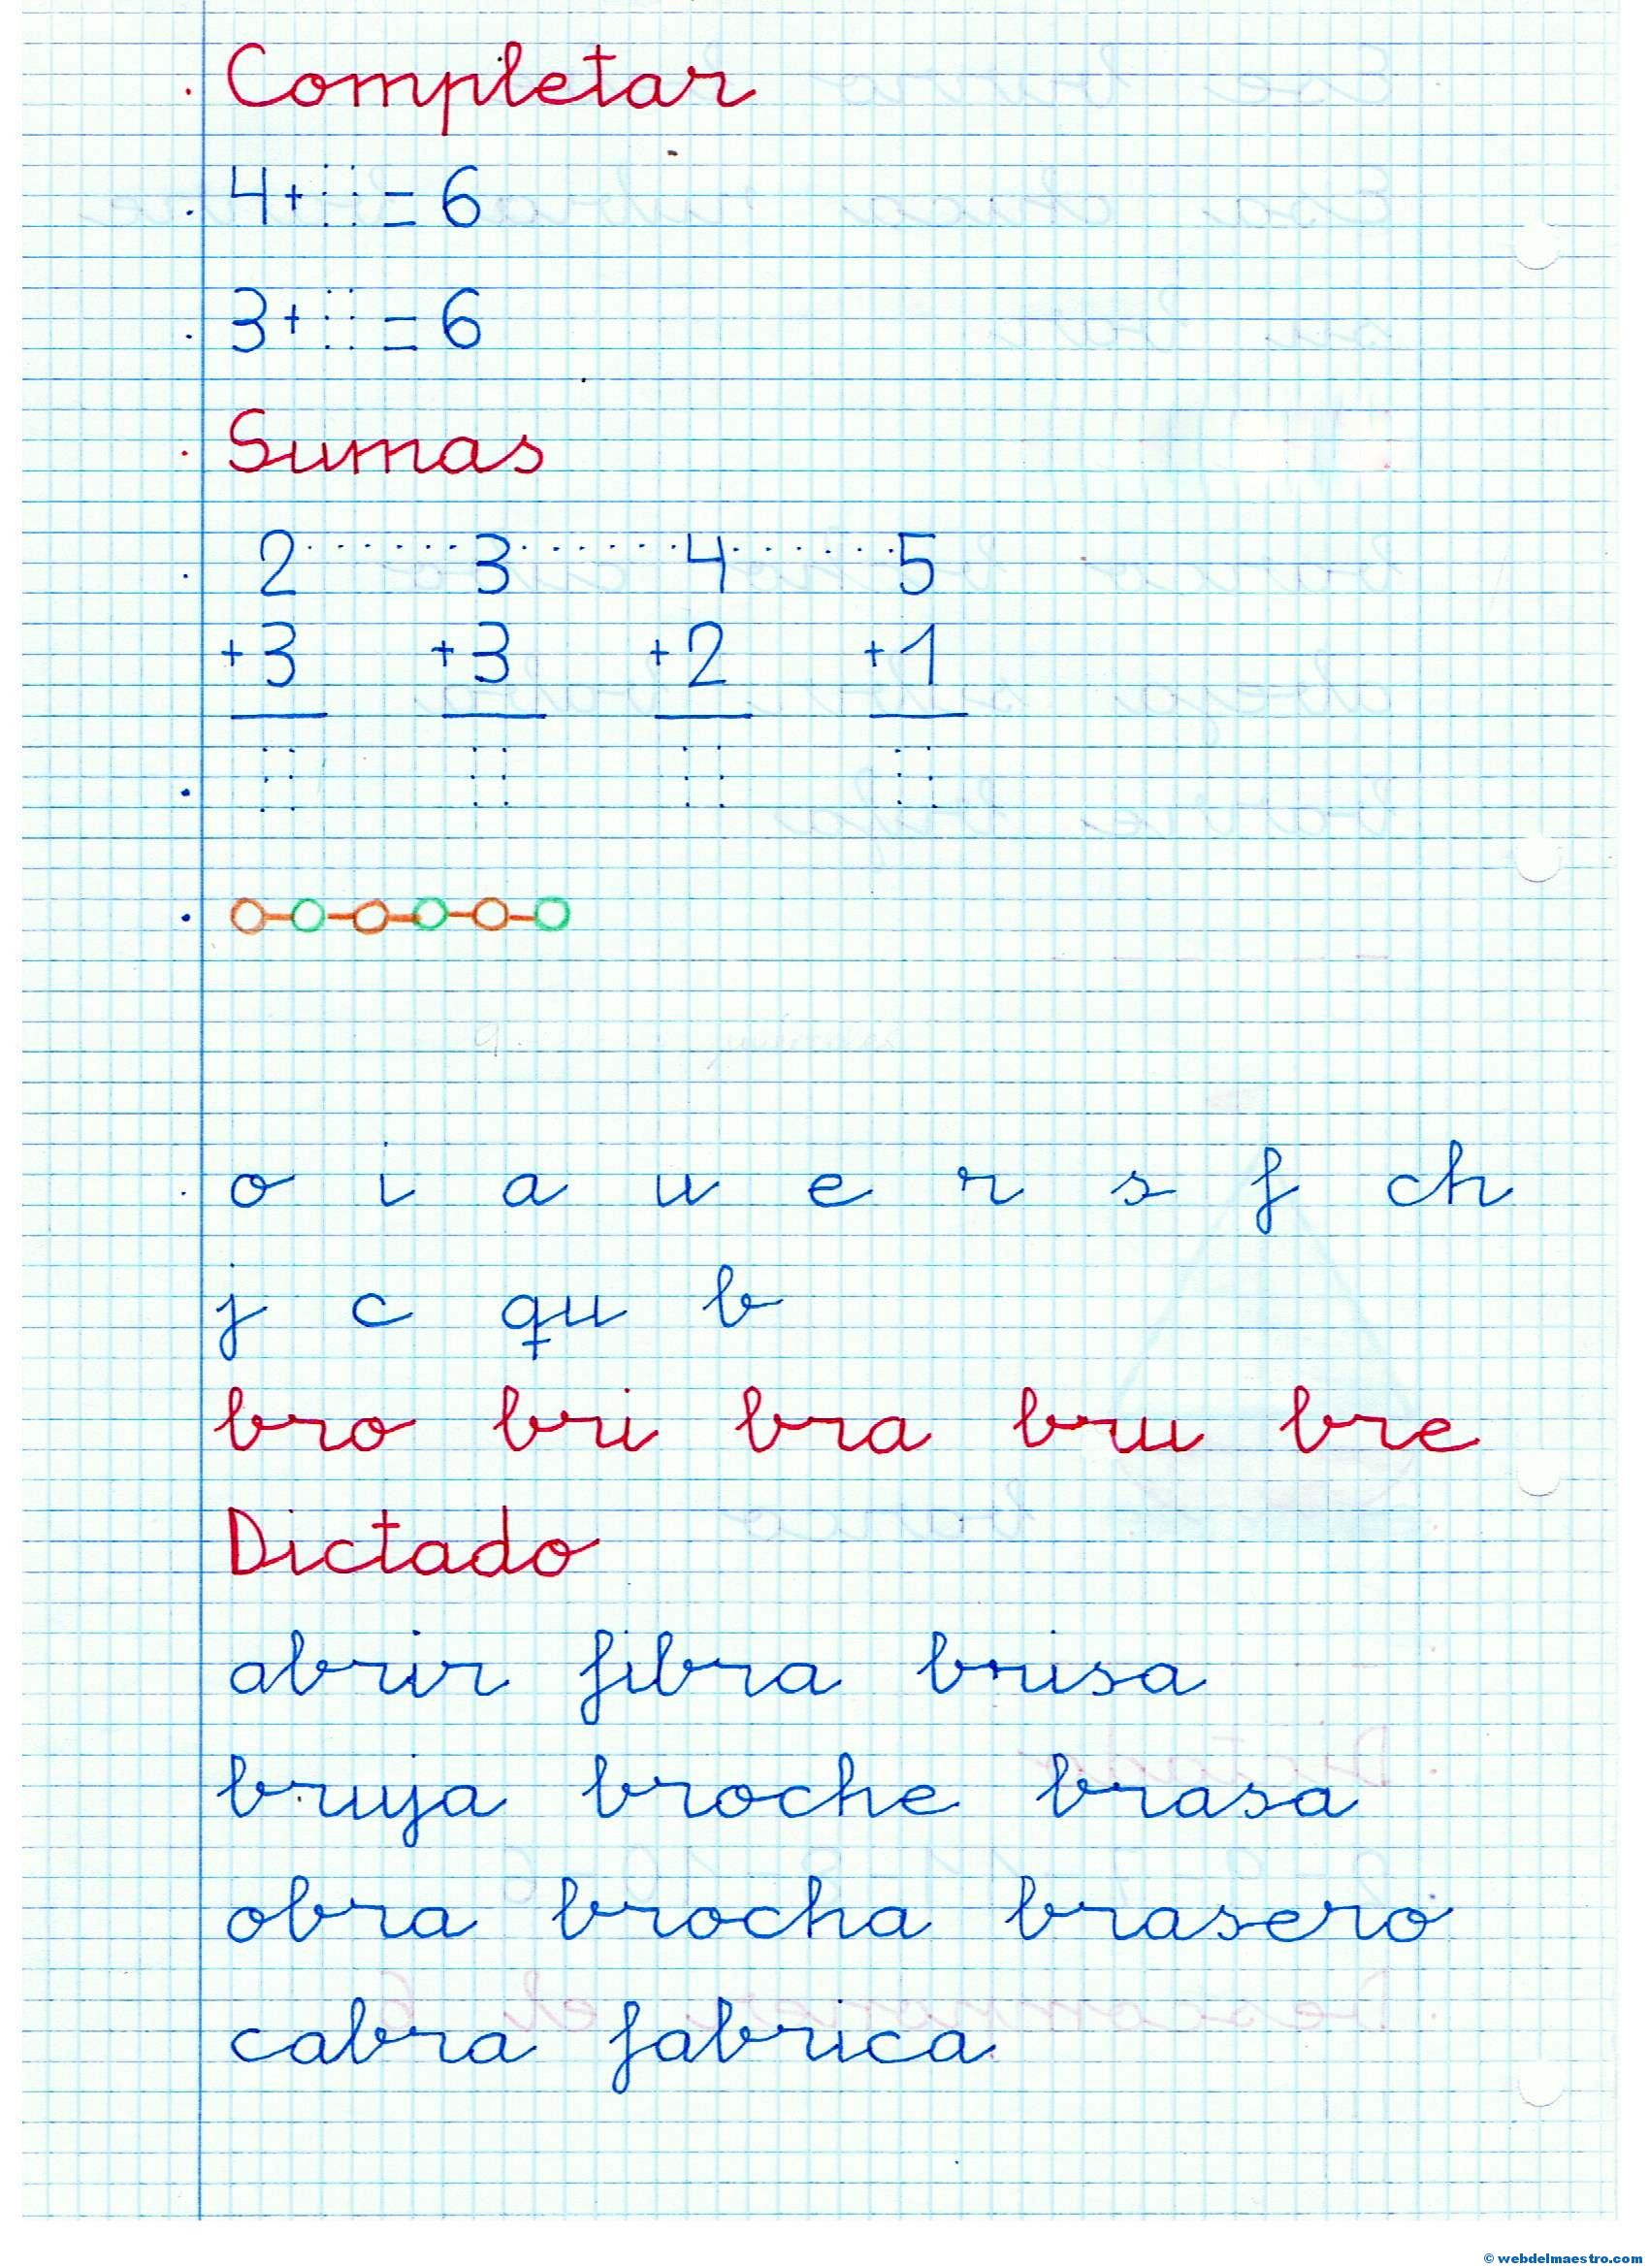 Completar
4+ = 6
3+ = 6
Sumas
2 3 4 5
+3 +3 +2 +1
o i a u e r s f ch
j c qu b
bro bri bra bru bre
Dictado
abrir fibra brisa
bruja broche brasa
obra brocha brasero
cabra fabrica
© webdelmaestro.com